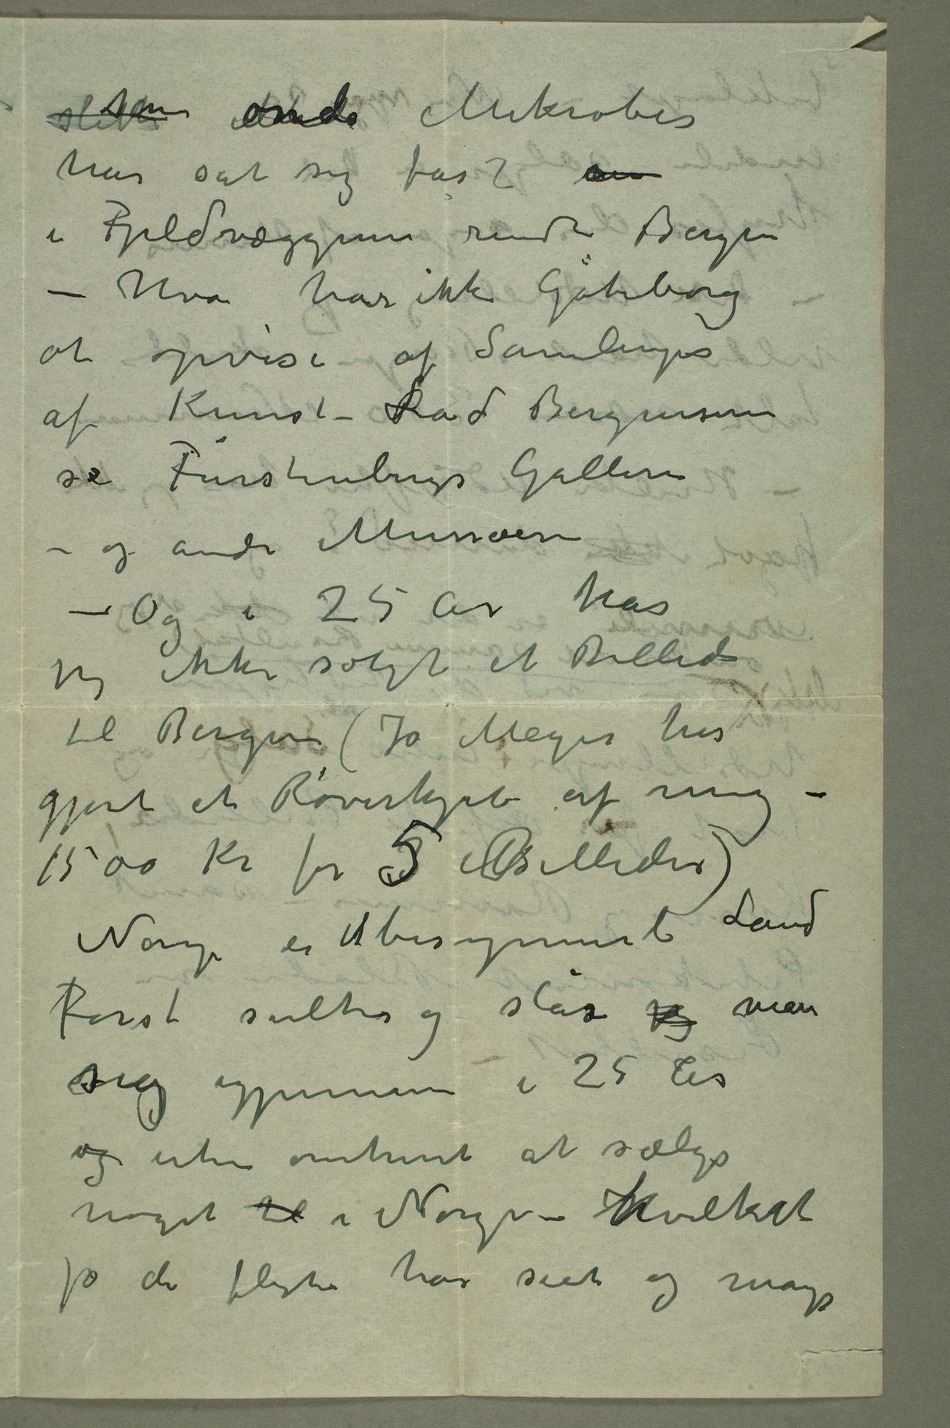 onde Mikrober
har sat sig fast
i Fjeldvæggene rundt Bergen
– Hva har ikke Gøteborg
at opvise af Samlinger
af Kunst – Lad Bergenserne
se Fürstenbergs Galleri
– og andre Museer
– Og i 25 Aar har
jeg ikke solgt et Billede
til Bergen (Jo Meyer har
gjort et Røverkjøb af mig –
1500 Kr for 5 Billeder)
Norge er et besynnerligt Land
Først sulter og slår man
sig igjennem i 25 år
og uten omtrent at sælge
noget i Norge – Hvilket
jo de fleste har seet og mange